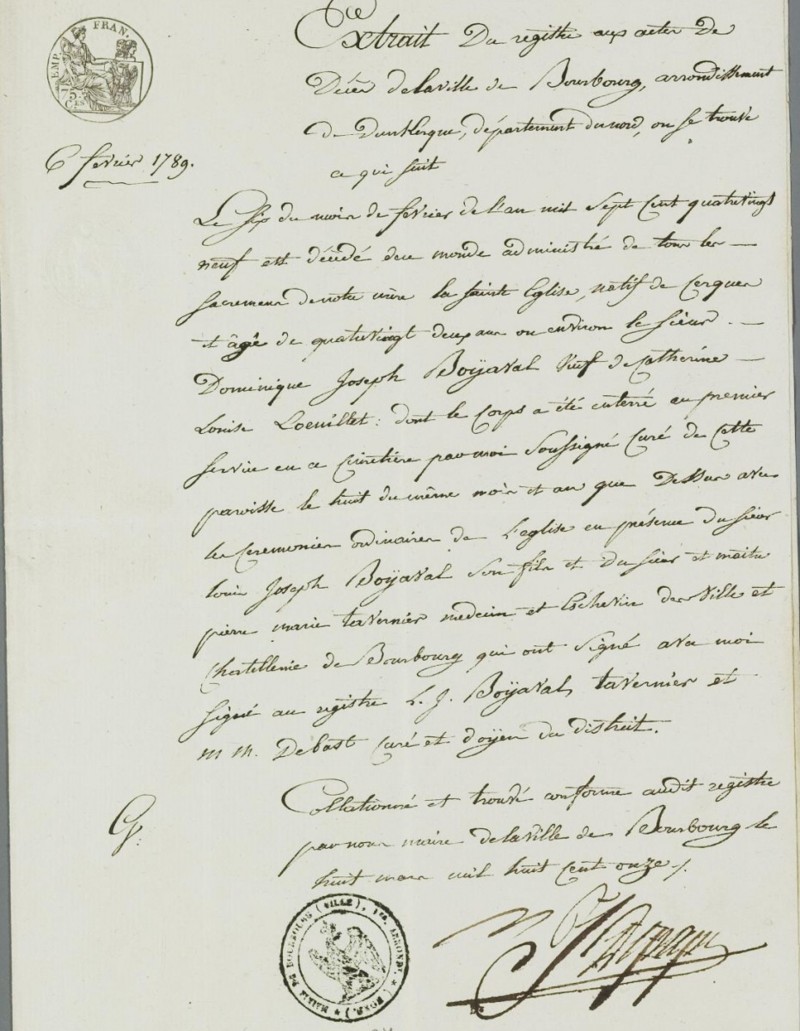 EMP. FRAN.
Extrait Du registre aux actes de
Décès delaville de Bourbourg, arrondissement
de Dunkerque, département du nord, ou se trouve
ce qui suit
6 fevrier 1789.
Le Six du mois de fevrier de l'an mil sept Cent quatrevingt
neuf est décédé dece monde administré de tous les
sacremens de notre mère la sainte Eglise, natif de Cerques
et âgé de quatrevingt deux ans ou environ le Sieur
Dominique Joseph Boÿaval Veuf de Catherine
Louise Loeuillet: dont le Corps a été enterré au premier
service en ce Cimetière par moi soussigné Curé de Cette
paroisse le huit du même mois et an que Dessus avec
les Ceremonies ordinaires de L'eglise en présence du sieur
louis Joseph Boÿaval son fils et du sieur et maitre
pierre marie tavernier medecin et Eschevin des Ville et
Chatellenie de Bourbourg qui ont signé avec moi
signé au registre L. J. Boÿaval, tavernier et
m m. Debast Curé et doÿen du district.
Collationné et trouvé conforme audit registre
par nous maire delaville de Bourbourg le
huit mars mil huit Cent onze /.
G.
MAIRIE DE BOURBOURG (VILLE), 1er. ARRONDt. (NORD.)